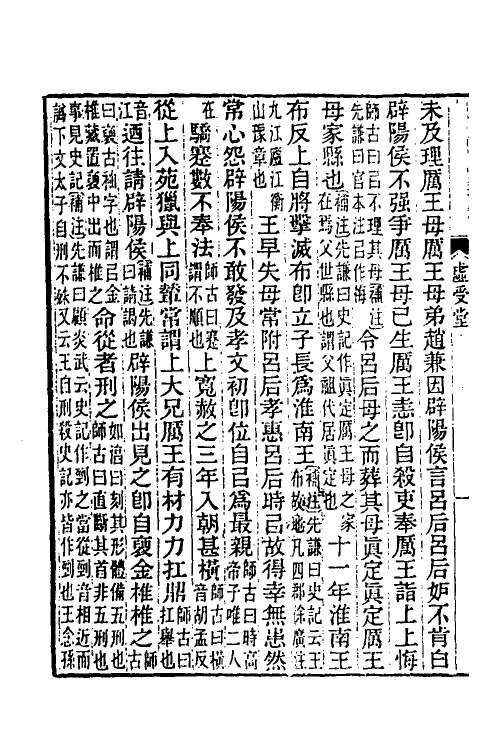 未及理厲王母厲王母弟趙兼因辟陽侯言呂后呂后妒不肯白
辟陽侯不强爭厲王母已生厲王恚即自殺吏奉厲王詣上上悔
師古曰㠯不理其母補注先謙曰官本注㠯作悔令呂后母之而葬其母眞定眞定厲王
母家縣也補注先謙曰史記作眞定厲王母之家在焉父世縣也謂父祖代居眞定也十一年淮南王
布反上自將擊滅布即立子長爲淮南王補注先謙曰史記云王布故地凡四郡徐廣注
九江廬江衡山豫章也王早失母常附呂后孝惠呂后時㠯故得幸無患然
常心怨辟陽侯不敢發及孝文初即位自㠯爲最親師古曰時高帝子唯二人
在驕蹇數不奉法師古曰蹇謂不順也上寬赦之三年入朝甚橫師古曰橫音胡孟反
從上入苑獵與上同輦常謂上大兄厲王有材力力扛鼎師古曰扛舉也
音江迺往請辟陽侯補注先謙曰請謁也辟陽侯出見之即自褏金椎椎之師古
曰褏古袖字也謂㠯金椎藏置褏中出而椎之命從者刑之如淳曰刻其形體備五刑也師古曰直斷其首非五刑也
事見史記補注先謙曰顧炎武云史記作剄之當從剄音相近而譌下文太子自刑不殊又云王自刑殺史記亦皆作剄也王念孫
虛受堂
一